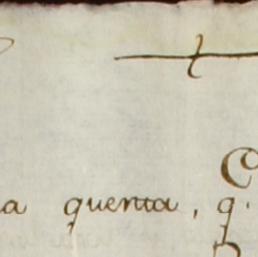 a quenta, q.